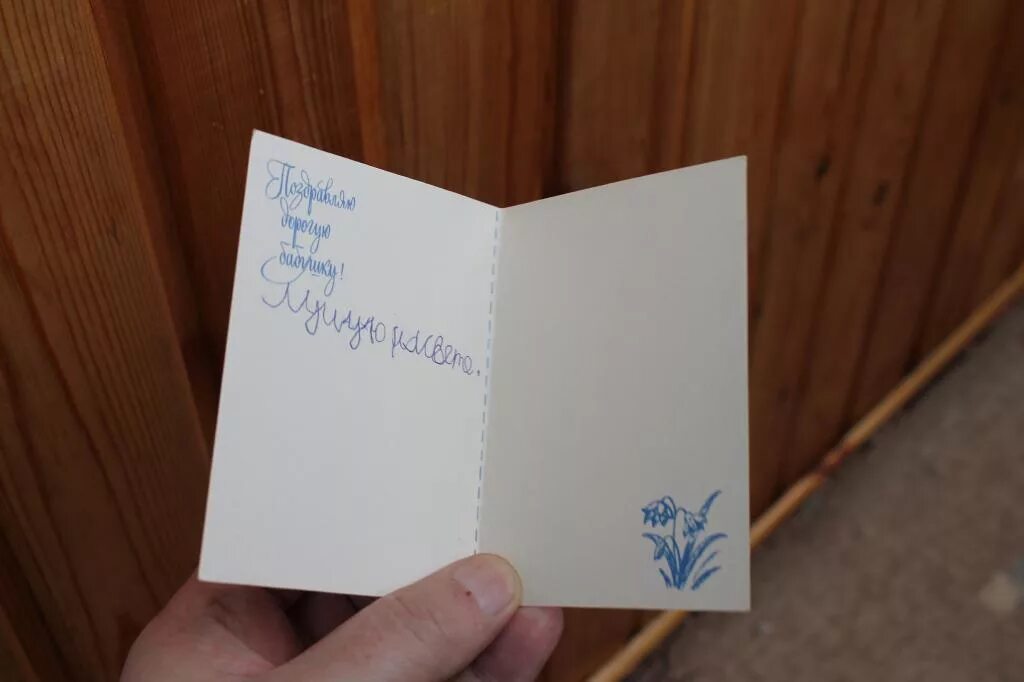 Поздравляю
дорогую
бабушку!
Лучшую на света.